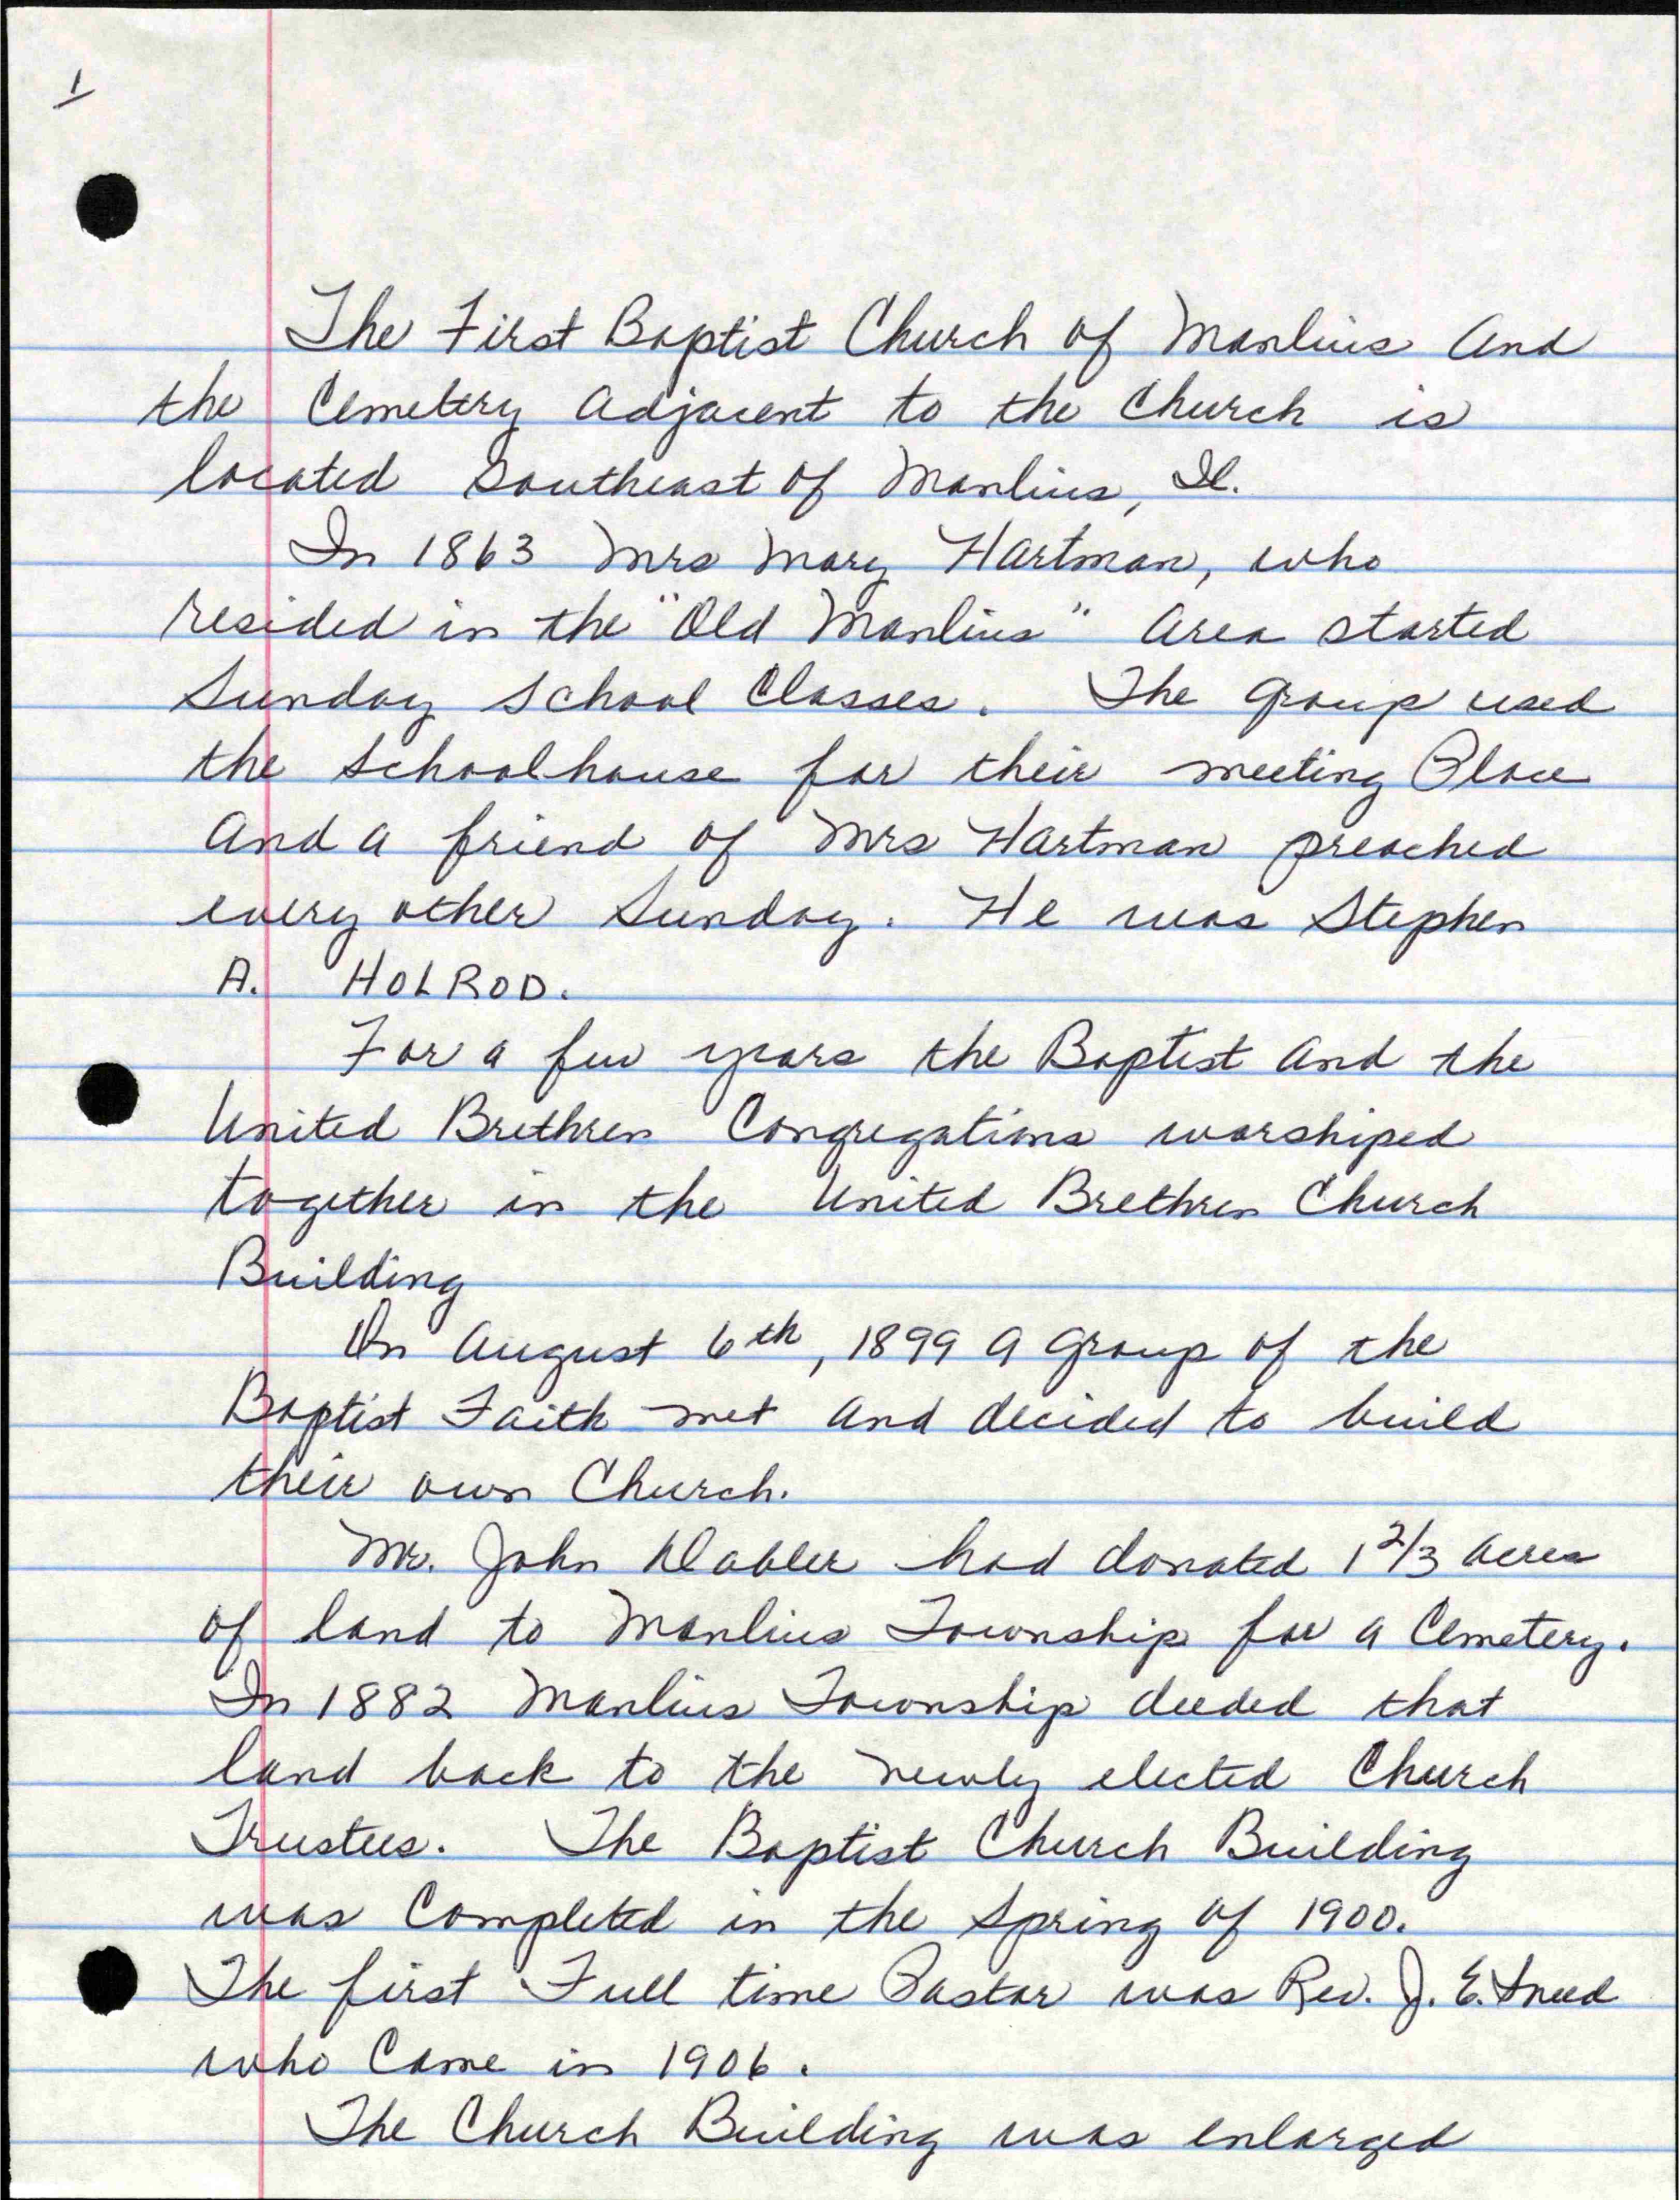 1
The First Baptist Church of Manlius And
the Cemetery Adjacent to the Church is
located Southeast of Manlius, Il.
In 1863 Mrs Mary Hartman, who
resided in the "Old Manlius" Area started
Sunday School Classes. The group used
the Schoolhouse for their meeting Place
And a friend of Mrs Hartman preached
every other Sunday. He was Stephen
A. HOLROD.
For a few years the Baptist And the
United Brethren Congregations worshiped
together in the United Brethren Church
Building
On August 6th, 1899 a group of the
Baptist Faith met And decided to build
their own Church.
Mr. John Dabler had donated 1 2/3 Acres
of land to Manlius Township for a Cemetery.
In 1882 Manlius Township deeded that
land back to the newly elected Church
Trustees. The Baptist Church Building
was Completed in the Spring of 1900.
The first Full time Pastor was Rev. J. E. Sneed
who Came in 1906.
The Church Building was enlarged